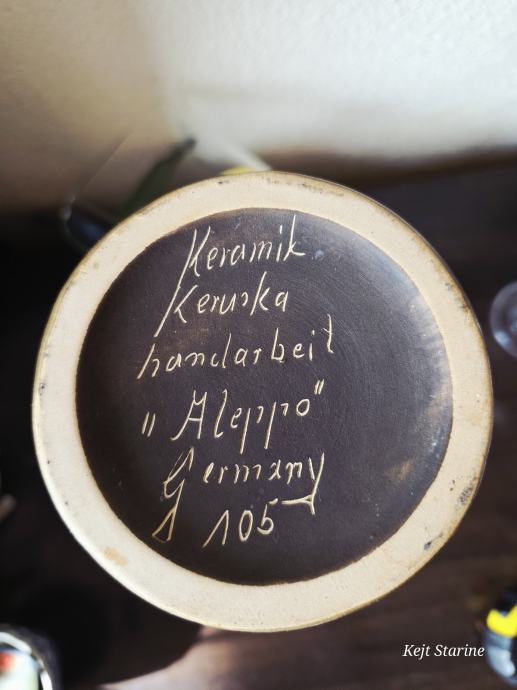 Keramik
Keruska
handarbeit
„Aleppo"
Germany
105
Kejt Starine